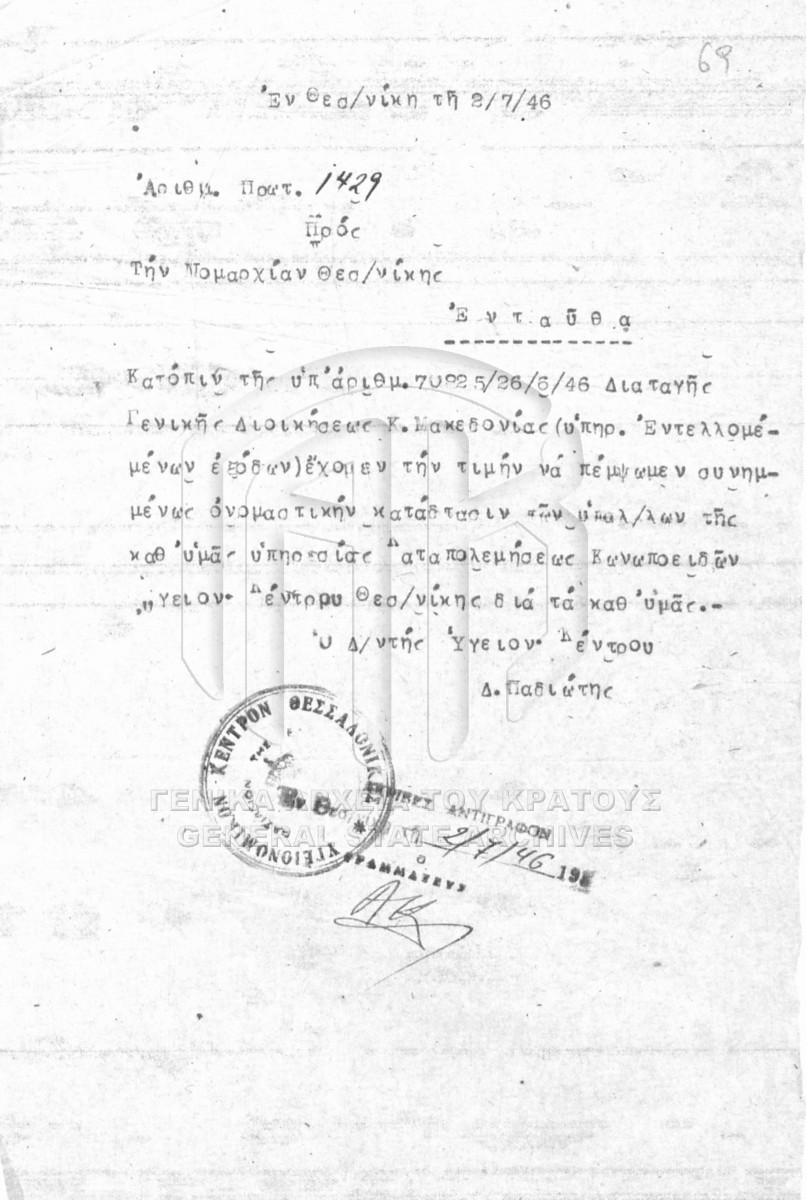 69
Ἐν Θεσ/νίκη τῇ 2/7/46
Ἀριθμ. Πρωτ. 1429
Πρός
Τήν Νομαρχίαν Θεσ/νίκης
Ἐ ν τ α ῦ θ α
Κατόπιν τῆς ὑπ'ἀριθμ. 70825/26/6/46 Διαταγῆς
Γενικῆς Διοικήσεως Κ. Μακεδονίας (ὑπηρ. Ἐντελλομέ-
μένων ἐξόδων) ἔχομεν τήν τιμήν νά πέμψωμεν συνημ-
μένως ὀνομαστικήν κατάστασιν τῶν ὑπαλ/λων τῆς
καθ'ὑμᾶς ὑπηρεσίας Καταπολεμήσεως Κωνωποειδῶν
Ὑγειον. Κέντρου Θεσ/νίκης διά τά καθ'ὑμᾶς.-
Ὁ Δ/ντής Ὑγειον. Κέντρου
Δ. Παδιώτης
ΥΓΕΙΟΝΟΜΙΚΟΝ ΚΕΝΤΡΟΝ ΘΕΣΣΑΛΟΝΙΚΗΣ
ΑΝΤΙΓΡΑΦΟΝ
2/7/46 19
Ο
ΓΡΑΜΜΑΤΕΥΣ
ΓΕΝΙΚΑ ΑΡΧΕΙΑ ΤΟΥ ΚΡΑΤΟΥΣ
GENERAL STATE ARCHIVES